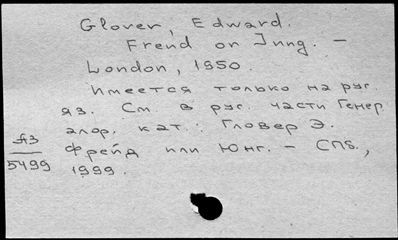 Glover, Edward.
Freud or Jung. –
London, 1950.
Имеется только на рус.
яз. См. в рус. части Генер.
алф. кат.: Гловер Э.
Фрейд или Юнг. – СПб.,
1999.
Яз
5499